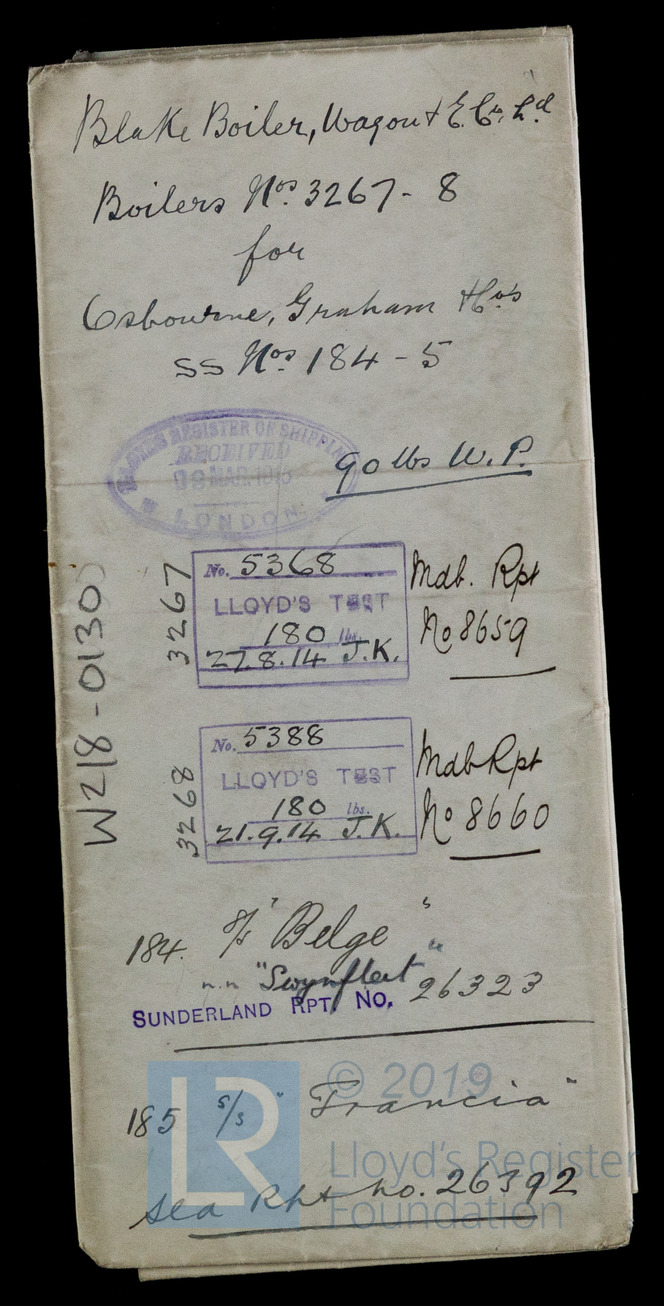 Blake Boiler, Wagon & E. Co. Ld
Boilers Nos. 3267 - 8
for
Osbourne, Graham & Co's
SS Nos. 184 - 5
LLOYD'S REGISTER OF SHIPPING
RECEIVED
MAR. 1915
LONDON
90 lbs W.P.
W218-0130
3267
No. 5368
LLOYD'S TEST
180 lbs.
27.8.14 J.K.
Mdb. Rpt
No 8659
3268
No. 5388
LLOYD'S TEST
180 lbs.
21.9.14 J.K.
Mdb Rpt
No 8660
184. S/S "Belge"
n.n "Swynfleet"
SUNDERLAND RPT. NO. 26323
185 S/S "Francia"
Sld Rpt no. 26392
LR
© 2019
Lloyd's Register
Foundation